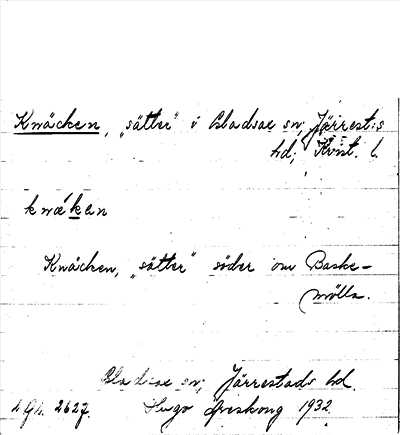 Knäcken, „sätter" i Gladsax sn; Järrest:s
hd; Krist. l.
knäkan
Knäcken, „sätter" söder om Baske-
mölla.
Gladsax sn; Järrestads hd.
2627. Hugo Areskoug 1932